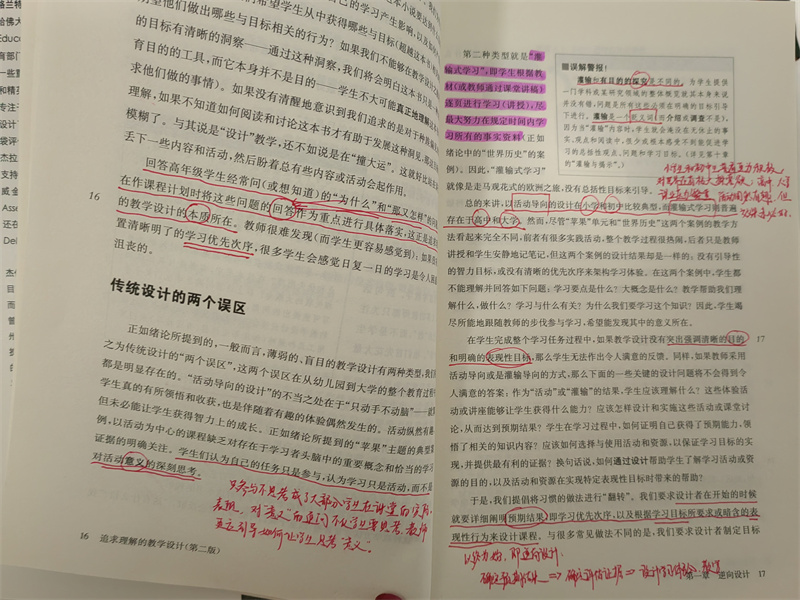 的目标有清晰的洞察——通过这种洞察,我们将会明白这本书只是
育目的的工具,而它本身并不是目的——学生不大可能真正地理解
求他们做的事情)。如果没有清醒地意识到我们追求的是对于种
理解,如果不知道如何阅读和讨论这本书才有助于发展这种洞见,那
模糊了。与其说是“设计”教学,还不如说是在“撞大运”,这就好比
丢下一些内容和活动,然后盼着总有些内容或活动会起作用。
回答高年级学生经常问(或想知道)的“为什么”和“那又怎样”的问
在作课程计划时将这些问题的回答作为重点进行具体落实,这正是追求
16
的教学设计的本质所在。教师很难发现(而学生更容易感觉到):如果
置清晰明了的学习优先次序,很多学生会感觉日复一日的学习是令人
沮丧的。
传统设计的两个误区
正如绪论所提到的,一般而言,薄弱的、盲目的教学设计有两种类型,我们
之为传统设计的“两个误区”,这两个误区在从幼儿园到大学的整个教育过程
都是明显存在的。“活动导向的设计”的不当之处在于“只动手不动脑”——
学生真的有所领悟和收获,也是伴随着有趣的体验偶然发生的。活动纵然有
但未必能让学生获得智力上的成长。正如绪论所提到的“苹果”主题的典型
例,以活动为中心的课程缺乏对存在于学习者头脑中的重要概念和恰当的学习
证据的明确关注。学生们认为自己的任务只是参与,认为学习只是活动,而不
对活动意义的深刻思考。
16 追求理解的教学设计(第二版)
第二种类型就是“灌
输式学习”,即学生根据教
材(或教师通过课堂讲稿)
逐页进行学习(讲授),尽
最大努力在规定时间内学
习所有的事实资料(正如
绪论中的“世界历史”的案
例)。因此,“灌输式学习”
就像是走马观花式的欧洲之旅,没有总括性目标来引导。
误解警报!
灌输和有目的的探究是不同的。为学生提供
一门学科或某研究领域的整体概览就其本身来说
并没有错,问题是所有这些必须在明确的目标引导
下进行。灌输是一个贬义词(而介绍或调查不是)。
因为当“灌输”内容时,学生就会淹没在无休止的事
实、观点和阅读中,很少或根本感受不到能促进学
习的总括性观点、问题和学习目标。(详见第十章
的“灌输与揭示”。)
总的来讲,以活动导向的设计在小学和初中比较典型,而灌输式学习则普遍
存在于高中和大学。然而,尽管“苹果”单元和“世界历史”这两个案例的教学方
法看起来完全不同,前者有很多实践活动,整个教学过程很热闹,后者只是教师
讲授和学生安静地记笔记,但这两个案例的设计结果却是一样的:没有引导性
的智力目标,或没有清晰的优先次序来架构学习体验。在这两个案例中,学生都
不能理解并回答如下问题:学习要点是什么?大概念是什么?教学帮助我们理
解什么,做什么?学习与什么有关?为什么我们要学习这个知识?因此,学生竭
尽所能地跟随教师的步伐参与学习,希望能发现其中的意义所在。
在学生完成整个学习任务过程中,如果教学设计没有突出强调清晰的目的
17
和明确的表现性目标,那么学生无法作出令人满意的反馈。同样,如果教师采用
活动导向或是灌输导向的方式,那么下面的一些关键的设计问题将不会得到令
人满意的答案:作为“活动”或“灌输”的结果,学生应该理解什么?这些体验活
动或讲座能够让学生获得什么能力?应该怎样设计和实施这些活动或课堂讨
论,从而达到预期结果?学生在学习过程中,如何证明自己获得了预期能力,领
悟了相关的知识内容?应该如何选择与使用活动和资源,以保证学习目标的实
现,并提供最有利的证据?换句话说,如何通过设计帮助学生了解学习活动或资
源的目的,以及活动和资源在实现特定表现性目标时带来的帮助?
于是,我们提倡将习惯的做法进行“翻转”。我们要求设计者在开始的时候
就要详细阐明预期结果,即学习优先次序,以及根据学习目标所要求或暗含的表
现性行为来设计课程。与很多常见做法不同的是,我们要求设计者制定目标
以终为始,即逆向设计.
第一章 逆向设计 17